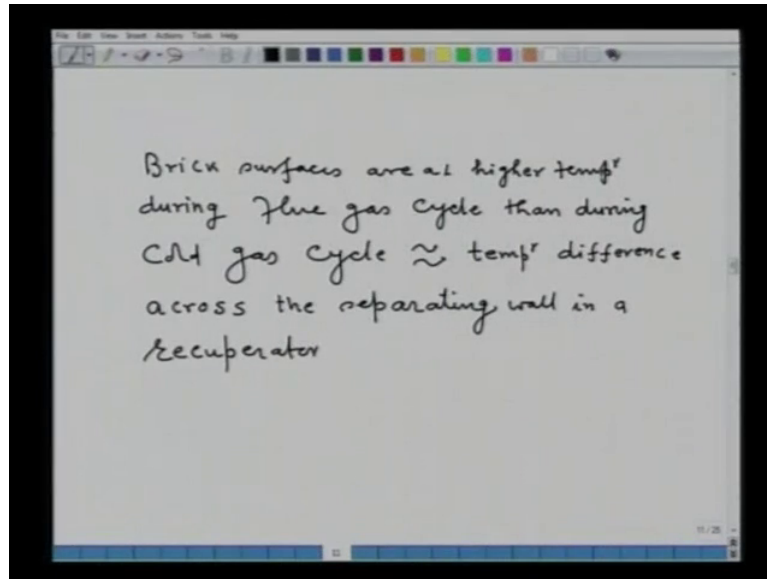 File Edit View Insert Actions Tools Help
Brick surfaces are at higher tempr
during Flue gas cycle than during
Cold gas cycle ≈ tempr difference
across the separating wall in a
recuperator
11 / 25